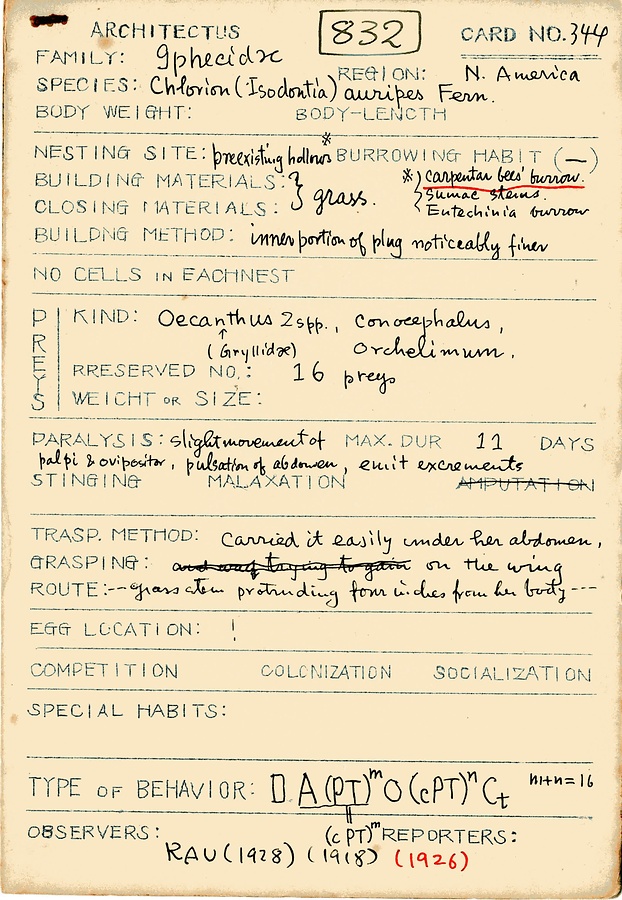 ARCHITECTUS 832 CARD NO. 344
FAMILY: Sphecidæ
REGION: N. America
SPECIES: Chlorion (Isodontia) auripes Fern.
BODY WEIGHT: BODY-LENGTH
NESTING SITE: preexisting hollows* BURROWING HABIT (—)
BUILDING MATERIALS: } grass. *) { carpentar bees' burrow.
CLOSING MATERIALS: sumac stems.
Entechinia burrow
BUILDNG METHOD: inner portion of plug noticeably finer
NO CELLS IN EACHNEST
PREYS
KIND: Oecanthus 2 spp., Conocephalus,
↑ (Gryllidæ) Orchelimum.
RRESERVED NO.: 16 preys
WEIGHT OR SIZE:
PARALYSIS: slight movement of MAX. DUR 11 DAYS
palpi & ovipositor, pulsation of abdomen, emit excrements
STINGING MALAXATION AMPUTATION
TRASP. METHOD: Carried it easily under her abdomen,
GRASPING: and was trying to gain on the wing
ROUTE: -- grass stem protruding four inches from her body ---
EGG LOCATION: !
COMPETITION COLONIZATION SOCIALIZATION
SPECIAL HABITS:
TYPE OF BEHAVIOR: D A (PT)ᵐ O (cPT)ⁿ Ct m+n=16
‖
(cPT)ᵐ
OBSERVERS: REPORTERS:
RAU (1928) (1918) (1926)